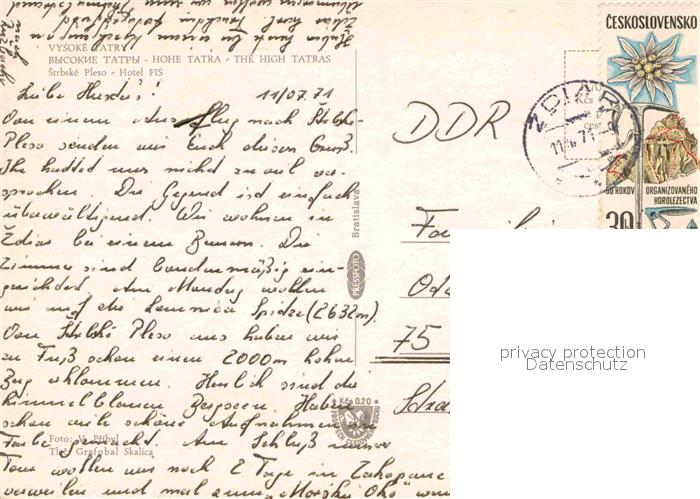 VYSOKÉ TATRY
ВЫСОКИЕ ТАТРЫ - HOHE TATRA - THE HIGH TATRAS
Štrbské Pleso - Hotel FIS
Liebe 11/07.71
Von einem Ausflug nach Štrbské-
Pleso senden wir Euch diesen Gruß.
Ihr hattet uns nicht zu viel ver-
sprochen. Die Gegend ist einfach
überwältigend. Wir wohnen in
Ždiar bei einem Bauern. Die
Zimmer sind bauernmäßig ein-
gerichtet. Am Montag wollen
wir auf die Lomnica Spitze (2632m).
Von Strbské Pleso aus haben wir
zu Fuß schon einen 2000m hohen
Berg erklommen. Herrlich sind die
himmelblauen Bergseen. Haben
schon viele schöne Aufnahmen in
Farbe gemacht. Am Schluß unserer
Tour wollen wir noch 2 Tage in Zakopane
verweilen und mal zum "Morskie Oko"
Foto: V. Přibyl
Tlač Grafobal Skalica
Bratislava
PRESSFOTO
Kčs 0.20
ČESKOSLOVENSKO
50 ROKOV ORGANIZOVANÉHO
HOROLEZECTVA
30
ŽDIAR
DDR
75
privacy protection
Datenschutz